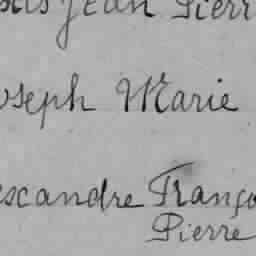 Jean Pierr
oseph Marie
escandre Franço
Pierre